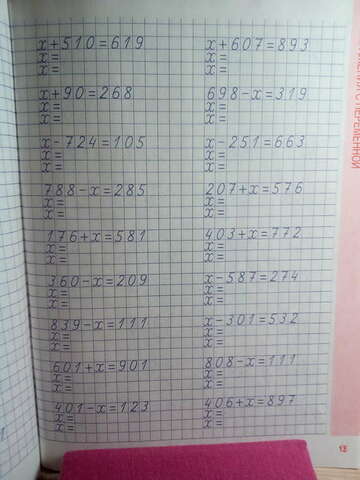 x+510=619
x=
x=
x+90=268
x=
x=
x-724=105
x=
x=
788-x=285
x=
x=
176+x=581
x=
x=
360-x=209
x=
x=
839-x=111
x=
x=
601+x=901
x=
x=
401-x=123
x=
x=
x+607=893
x=
x=
698-x=319
x=
x=
x-251=663
x=
x=
207+x=576
x=
x=
403+x=772
x=
x=
x-587=274
x=
x=
x-301=532
x=
x=
808-x=111
x=
x=
406+x=897
x=
x=
С ПЕРЕМЕННОЙ
13